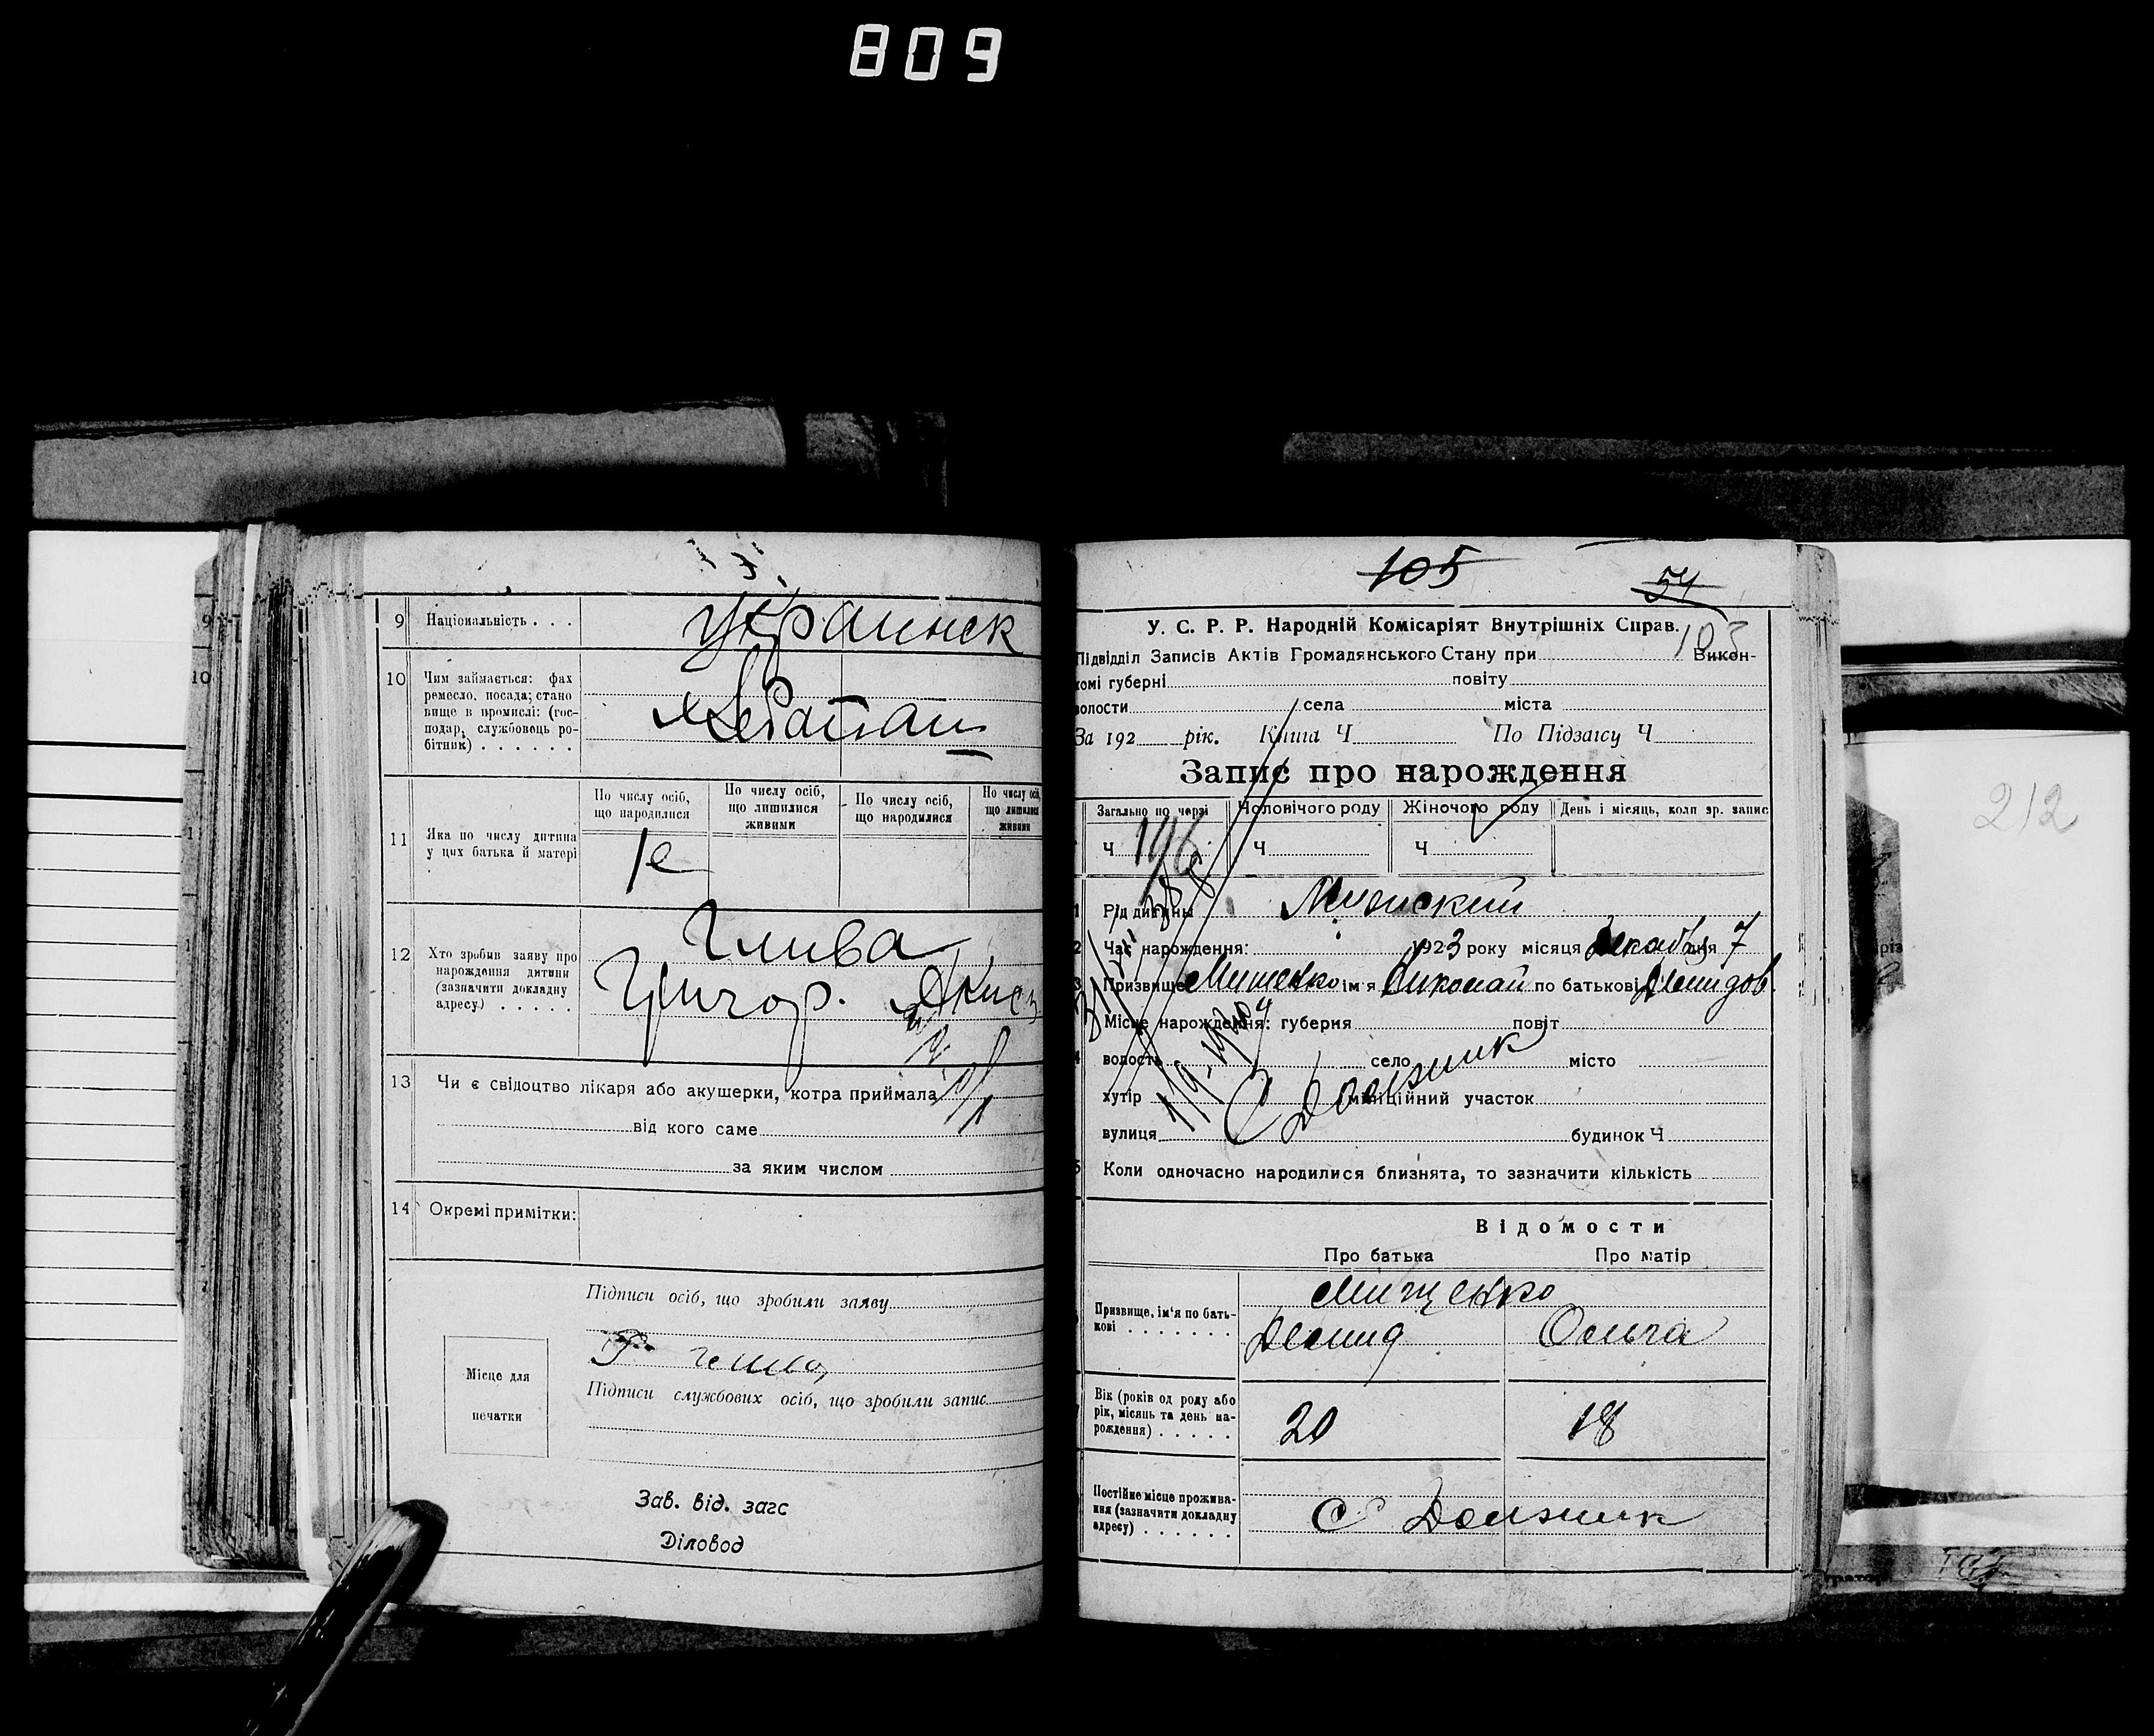 809
9 Національність . . .
Украинск
10 Чим займається: фах
ремесло, посада; стано
вище в промислі: (гос-
подар, службовець ро-
бітник) . . . . . .
Хлебопаш
11 Яка по числу дитина
у цих батька й матері
По числу осіб,
що народилися
По числу осіб,
що лишилися
живими
По числу осіб,
що народилися
По числу осіб,
що лишилися
живими
1е
12 Хто зробив заяву про
нарождення дитини
(зазначити докладну
адресу) . . . . .
Глива
Григор.
13 Чи є свідоцтво лікаря або акушерки, котра приймала
від кого саме
за яким числом
14 Окремі примітки:
Підписи осіб, що зробили заяву
Місце для
печатки
Підписи службових осіб, що зробили запис
Зав. від. загс
Діловод
105
54
У. С. Р. Р. Народній Комісаріят Внутрішніх Справ.
105
Підвідділ Записів Актів Громадянського Стану при Викон-
комі губерні повіту
волости села міста
За 192 рік. Книга Ч По Підзагсу Ч
Запис про нарождення
Загально по черзі Чоловічого роду Жіночого роду День і місяць, коли зр. запис
Ч Ч Ч
1 Рід дитини Мужский
2 Час нарождення: 1923 року місяця Декабр дня 7
3 Призвище Мищенко ім'я Николай по батькові Демидов.
4 Місце нарождення: губерня повіт
волость село місто
хутір міліційний участок
С Должик
вулиця будинок Ч
5 Коли одночасно народилися близнята, то зазначити кількість
Відомости
Про батька Про матір
Призвище, ім'я по бать-
кові . . . . . . .
Мищенко
Демид Ольга
Вік (років од роду або
рік, місяць та день на-
рождення) . . . . .
20 18
Постійне місце прожива-
ння (зазначити докладну
адресу) . . . . . .
С Должик
212